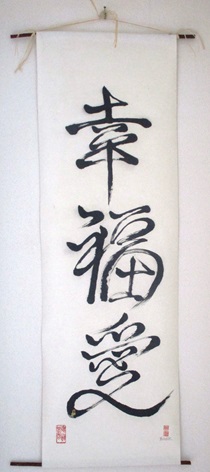 幸
福
愛